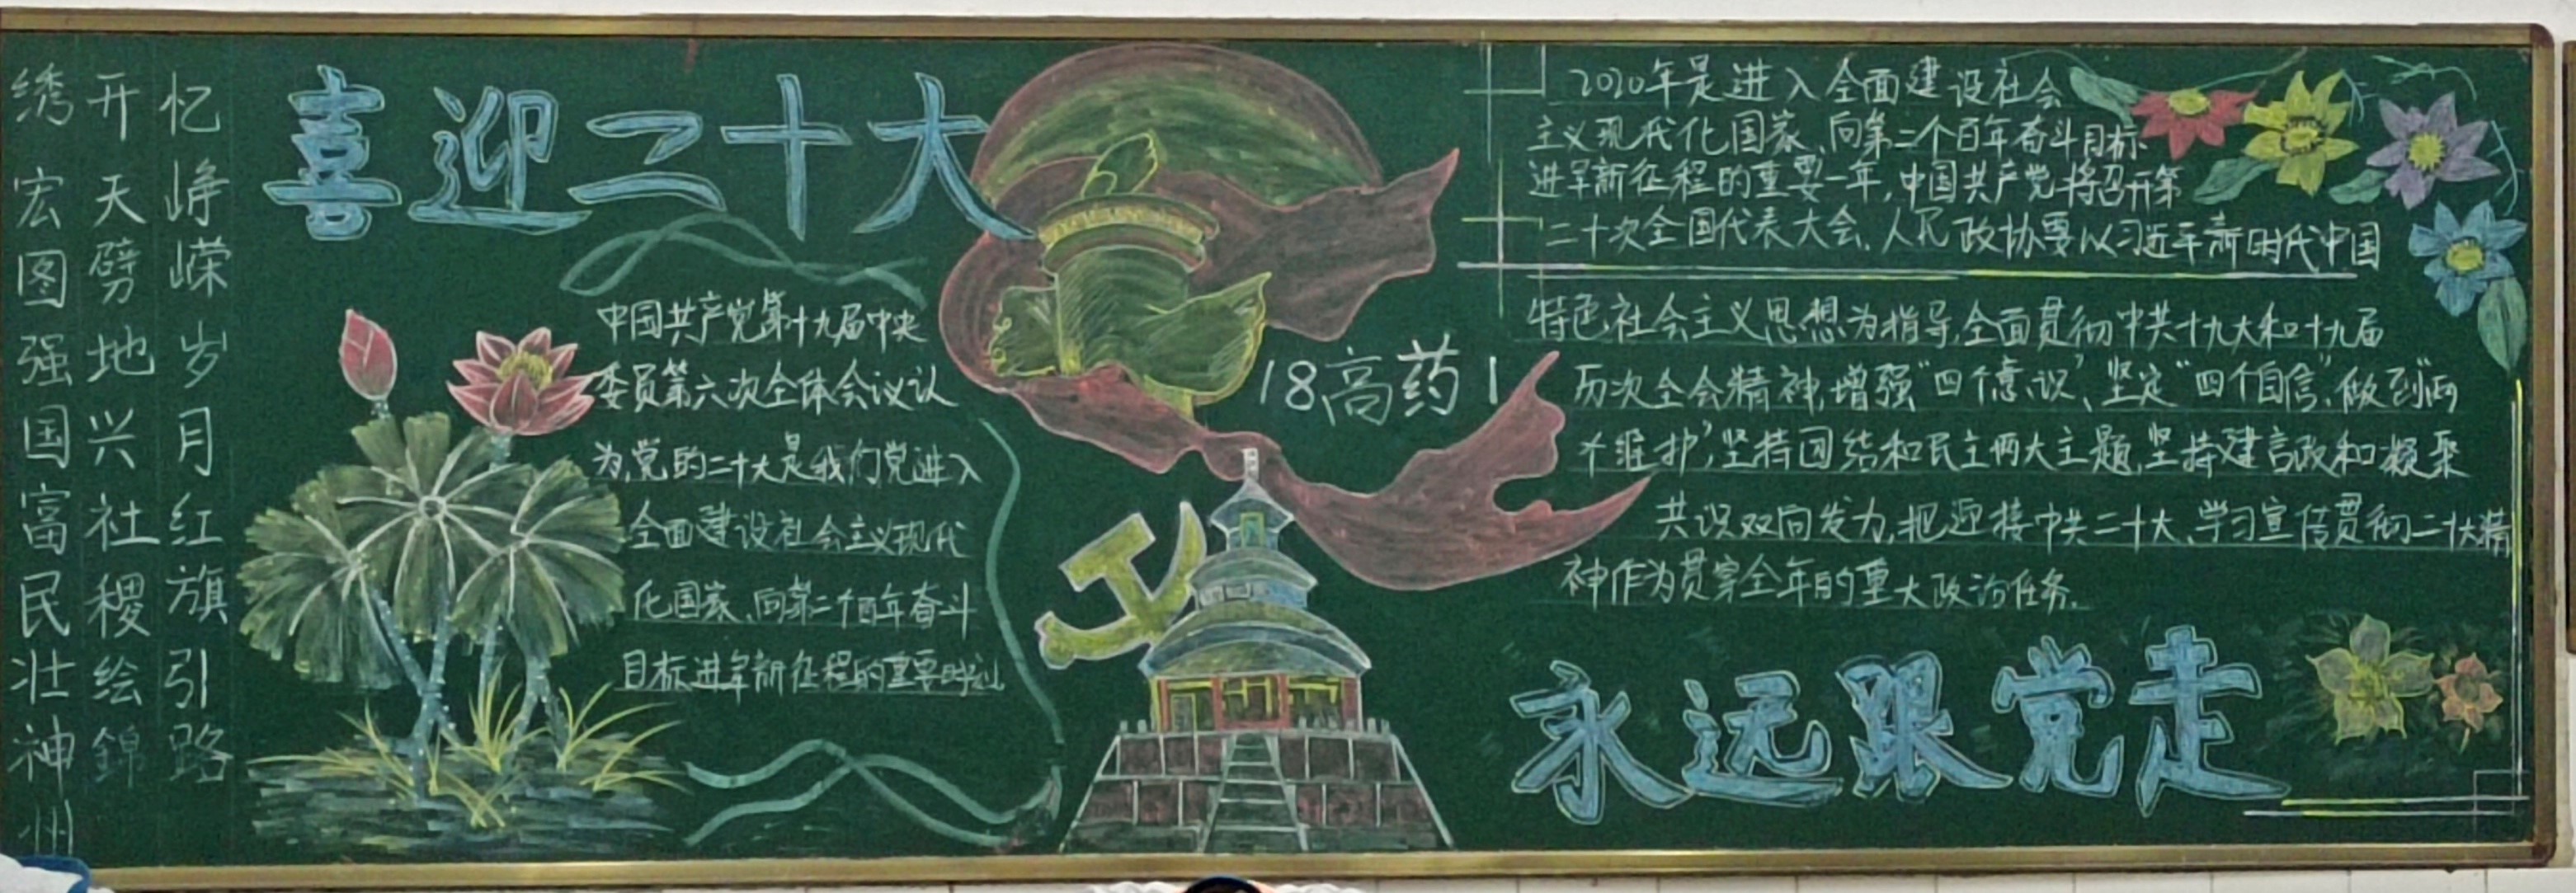 忆峥嵘岁月红旗引路
开天劈地兴社稷绘錦
绣宏图强国富民壮神州
喜迎二十大
中国共产党第十九届中央
委员第六次全体会议认
为,党的二十大是我们党进入
全面建设社会主义现代
化国家、向第二个百年奋斗
目标进军新征程的重要时刻
18高药1
2020年是进入全面建设社会
主义现代化国家、向第二个百年奋斗目标
进军新征程的重要一年,中国共产党将召开第
二十次全国代表大会、人民政协要以习近平新时代中国
特色社会主义思想为指导,全面贯彻中共十九大和十九届
历次全会精神,增强“四个意识”、坚定“四个自信”、做到“两
个维护”,坚持团结和民主两大主题,坚持建言政和凝聚
共识双向发力,把迎接中共二十大、学习宣传贯彻二十大精
神作为贯穿全年的重大政治任务。
永远跟党走